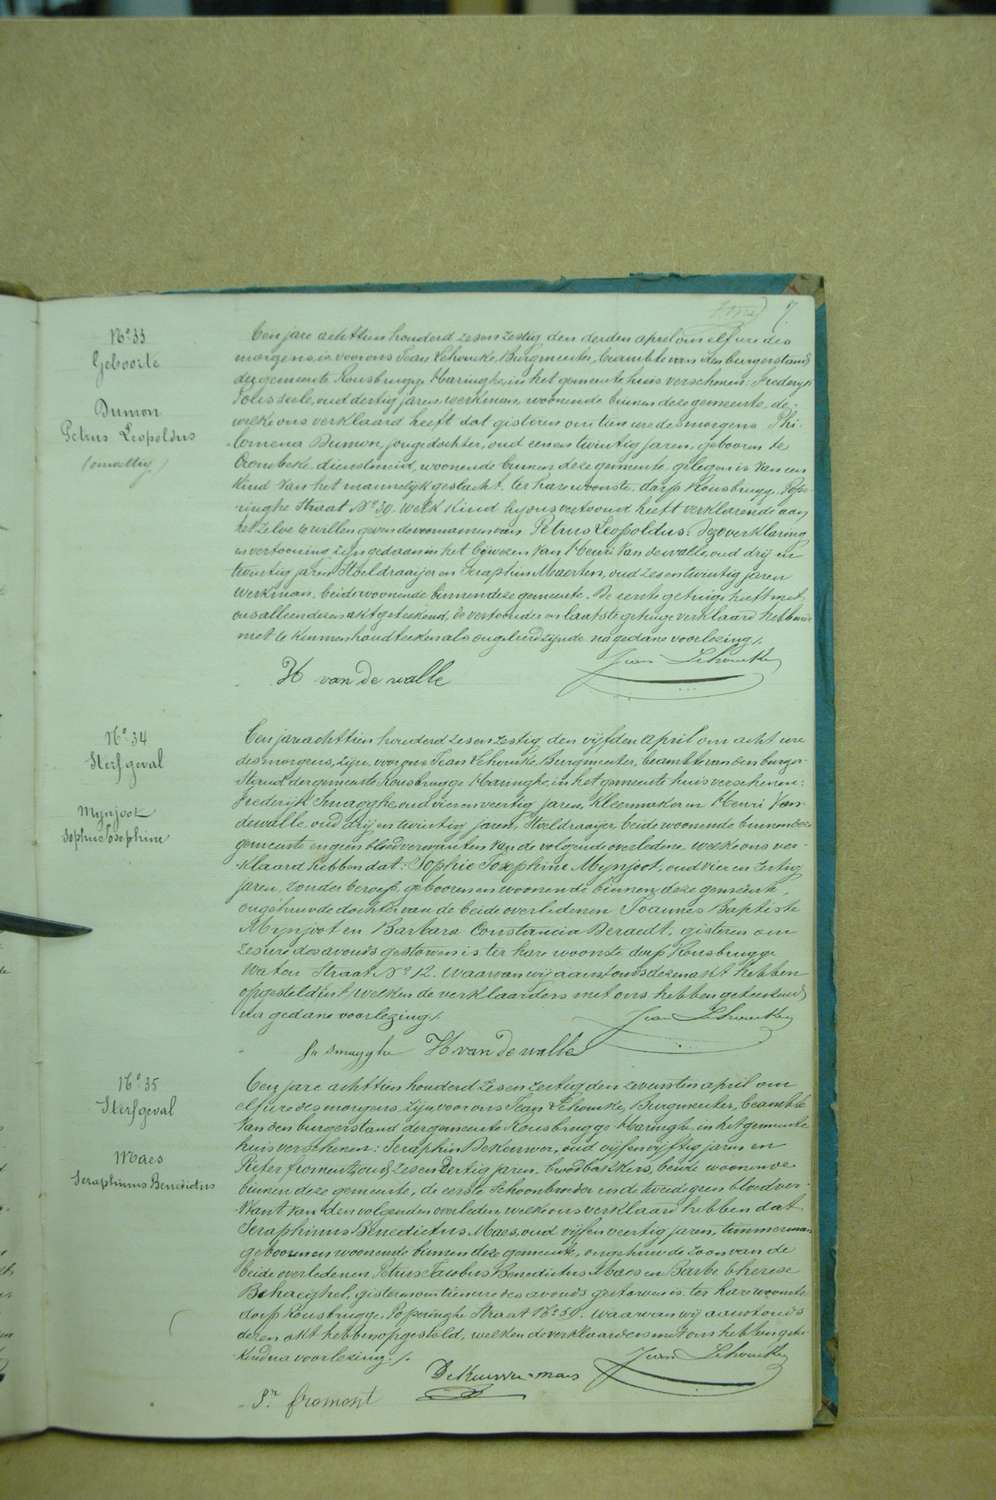 7
No 33
Geboorte
Dumon
Petrus Leopoldus
(onwettig)
Een jare achttien honderd zesenzestig den derden april om elf ure des
morgens, is voor ons Jean Lehoucke, Burgmeester, beambte van den burgerstand
der gemeente Rousbrugge Haringhe, in het gemeente huis verschenen: Frederijk
oud dertig jaren, werkman, woonende binnen deze gemeente, de-
welke ons verklaard heeft dat gisteren om tien ure des morgens Phi-
lomena Dumon, jongedochter, oud eenentwintig jaren, geboren te
Crombeke, dienstmeid, woonende binnen deze gemeente gelegen is van een
kind van het mannelijk geslacht, ter hare woonste, dorp Rousbrugge, Pope-
ringhe Straat No 30. welk kind hy ons vertoond heeft verklarende aan
het zelve te willen geven de voornamen van Petrus Leopoldus. Deze verklaring
en vertooning zijn gedaan in het bywezen van Henri Van de walle, oud drij en
twintig jaren, Stoeldraaijer en Seraphin Maerten, oud zesentwintig jaren
werkman, beide woonende binnen deze gemeente. De eerste getuige heeft met
ons alleen dezen akt geteekend, de vertoonder en laatste getuige verklaard hebbende
niet te kunnen handteekenen als ongeleerd zijnde na gedane voorlezing /.
Jean Lehoucke
H van de walle
No 34
Sterfgeval
Mynjoot
Sophie Josephine
Een jare achttien honderd zesenzestig den vijfden april om acht ure
des morgens, zijn voor ons Jean Lehoucke Burgmeester, beambte van den burger-
stand der gemeente Rousbrugge Haringhe, in het gemeente huis verschenen:
Frederijk Smagghe, oud vierenveertig jaren, kleermaker en Henri Van-
dewalle, oud drij en twintig jaren, Stoeldraaijer beide woonende binnen deze
gemeente en geen bloedverwanten van de volgende overledene, welke ons ver-
klaard hebben dat: Sophie Josephine Mynjoot, oud vier en zestig
jaren, zonder beroep, geboren en woonende binnen deze gemeente,
ongehuwde dochter van de beide overledenen Joannes Baptiste
Mynjoot en Barbara Constancia Deraedt, gisteren om
zes ure des avonds gestorven is ter hare woonste dorp Rousbrugge
Waton Straat No 12. Waarvan wij aanstonds dezen akt hebben
opgesteld, welken de verklaarders met ons hebben geteekend
na gedane voorlezing /.
Jean Lehoucke
fr smagghe H van de walle
No 35
Sterfgeval
Maes
Seraphinus Benedictus
Een jare achttien honderd zesenzestig den zevensten april om
elf ure des morgens zijn voor ons Jean Lehoucke, Burgmeester, beambte
van den burgerstand der gemeente Rousbrugge Haringhe, in het gemeente
huis verschenen: Seraphin Dekeuwer, oud vijfenvijftig jaren en
Pieter fromont, oud zesendertig jaren, broodbakkers, beide woonende
binnen deze gemeente, de eerste schoonbroeder en de tweede geen bloedver-
want van den volgenden overleden, welke ons verklaard hebben dat
Seraphinus Benedictus Maes, oud vijfenveertig jaren, timmerman
geboren en woonende binnen deze gemeente, ongehuwde zoon van de
beide overledenen, Petrus Jacobus Benedictus Maes en Barbe Therese
Behaeghel, gisteren om tien ure des avonds gestorven is ter hare woonste
dorp Rousbrugge, Poperinghe Straat No 50. waarvan wij aanstonds
dezen akt hebben opgesteld, welken de verklaarders met ons hebben getee-
kend na voorlezing. /.
Jean Lehoucke
Dekeuwer-maes
Pr. fromont